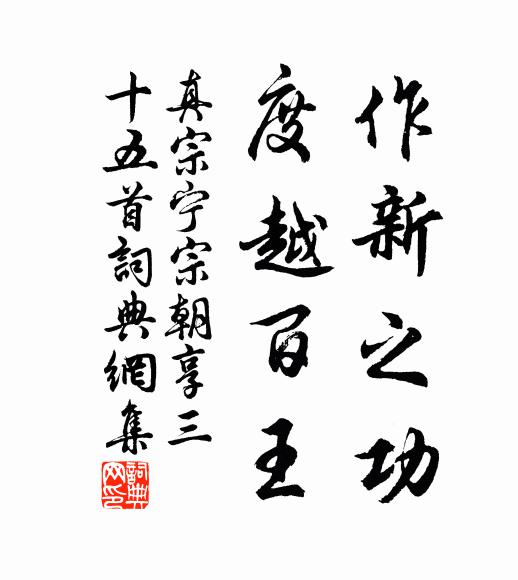 作新之功
度越百王
真宗宁宗朝享三
十五首詞典網集
詞典网印